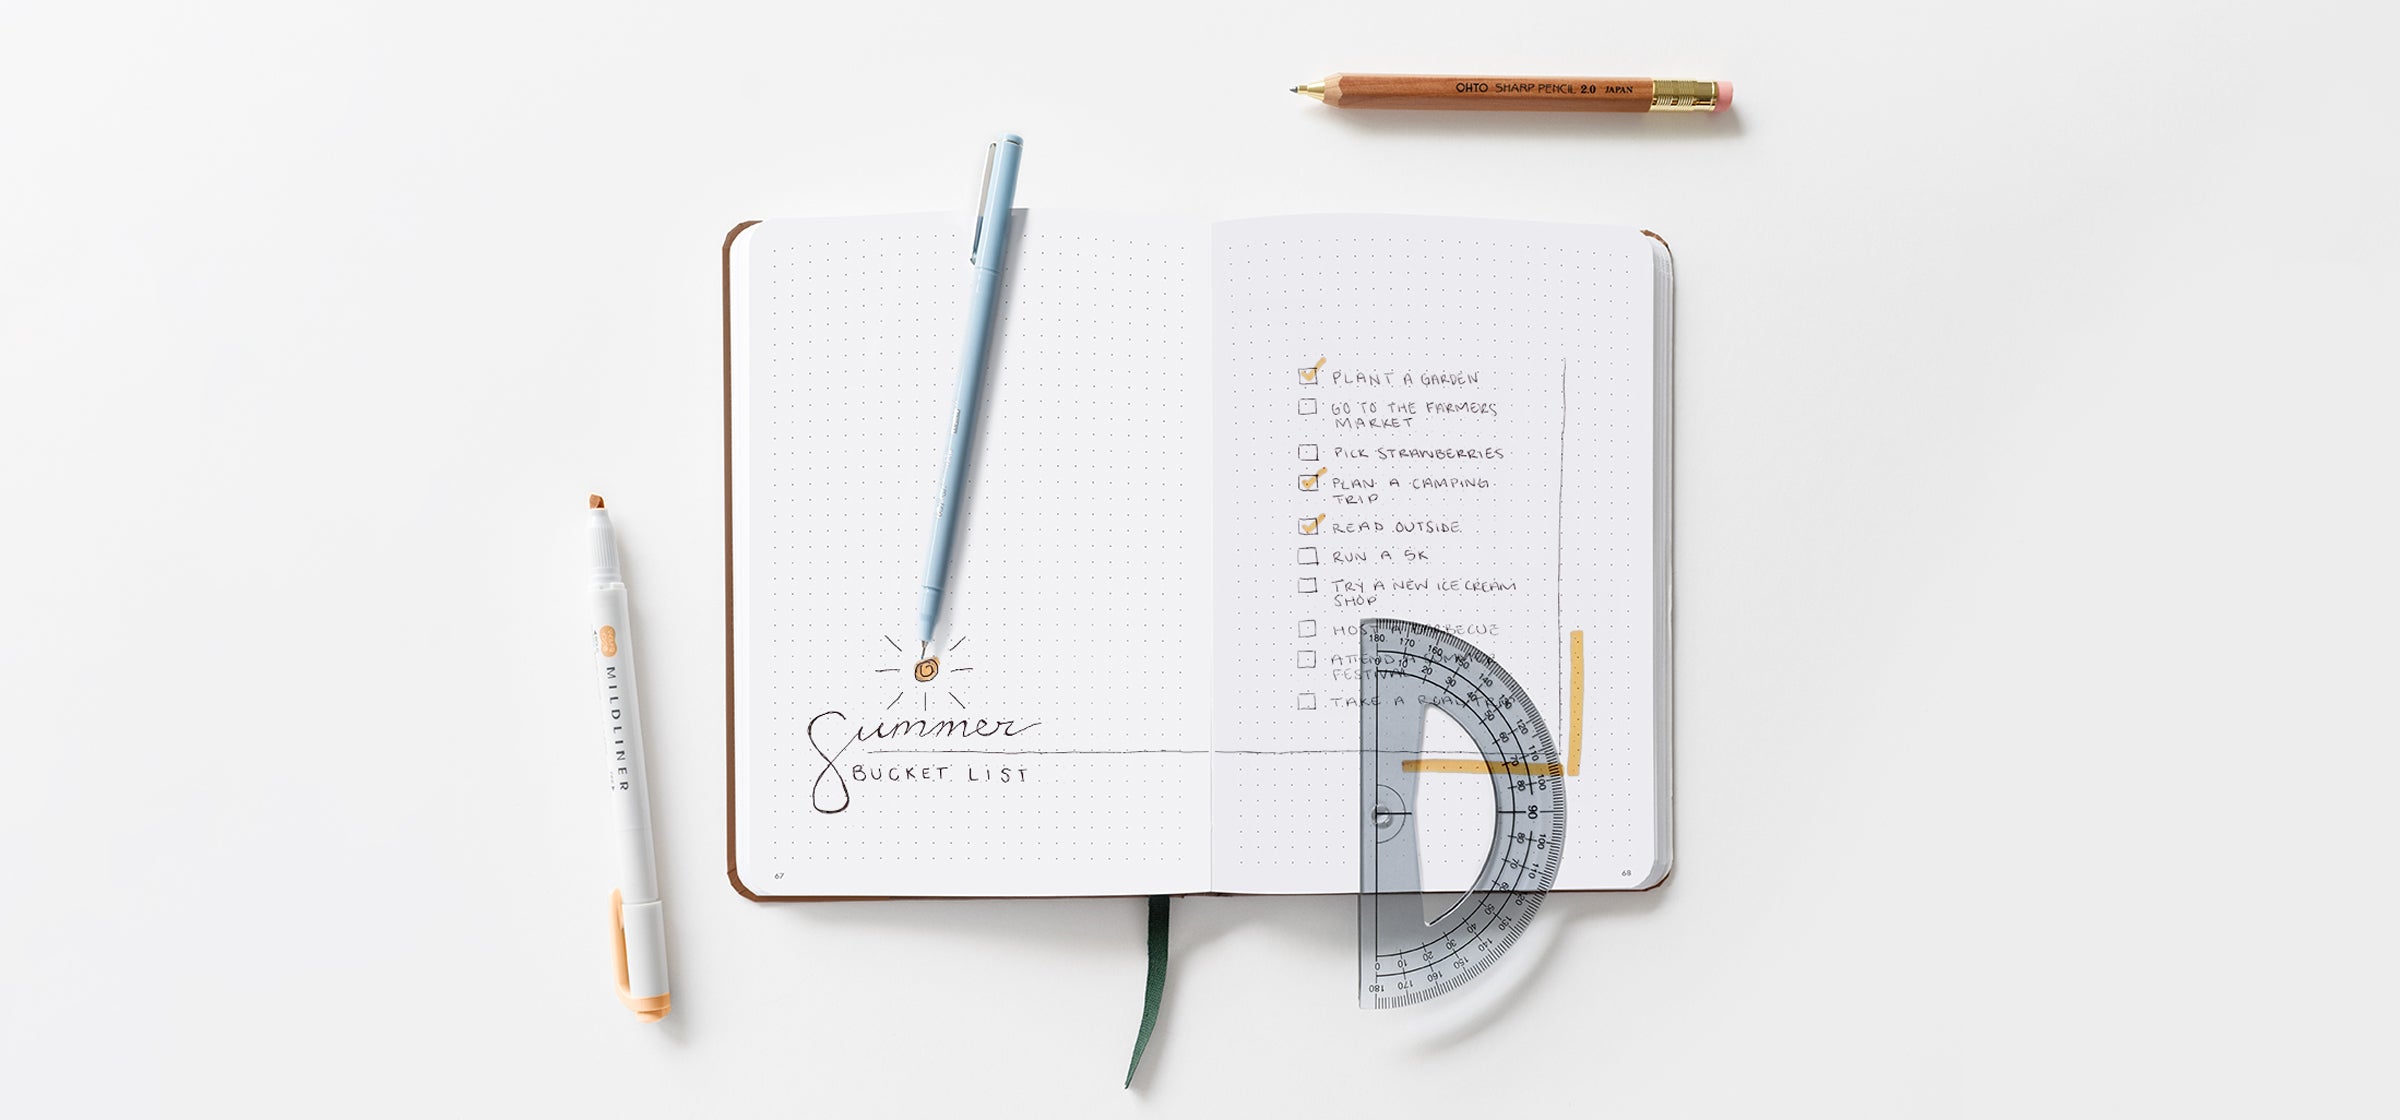 OHTO SHARP PENCIL 2.0 JAPAN
Summer
BUCKET LIST
67
PLANT A GARDEN
GO TO THE FARMERS
MARKET
PICK STRAWBERRIES
PLAN A CAMPING
TRIP
READ OUTSIDE
RUN A 5K
TRY A NEW ICE CREAM
SHOP
HOST A BARBECUE
ATTEND A SUMMER
FESTIVAL
TAKE A ROAD TRIP
68
MILDLINER
180 170 160 150 140 130 120 110 100 90 100 110 120 130 140 150 160 170 180
0 10 20 30 40 50 60 70 80 90 80 70 60 50 40 30 20 10 0